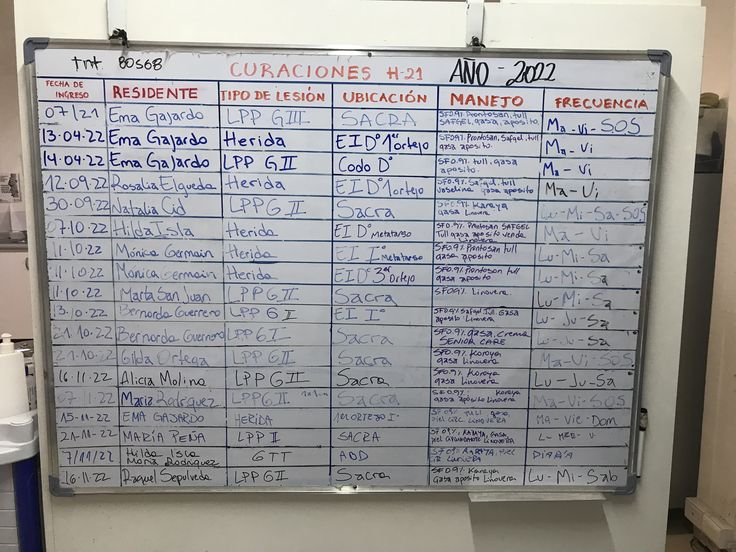 tnt 80568 CURACIONES H-21 AÑO - 2022
FECHA DE INGRESO RESIDENTE TIPO DE LESIÓN UBICACIÓN MANEJO FRECUENCIA
07/21 Ema Gajardo LPP G III SACRA SF0.9% Prontosan, tull SAFGEL, gasa, aposito. Ma - Vi - SOS
13-04-22 Ema Gajardo Herida EI D° 1er ortejo SF0.9% Prontosan, Safgel, tull gasa aposito Ma - Vi
14-04-22 Ema Gajardo LPP G II Codo D° SF0.9% tull, gasa aposito. Ma - Vi
12-09-22 Rosalia Elgueda Herida EI D° 1 ortejo SF0.9% Safgel, tull gasa aposito Ma - Vi
30-09-22 Natalia Cid LPP G II Sacra SF0.9% Karaya gasa Linovera Lu - Mi - Sa - SOS
07.10-22 Hilda Isla Herida EI D° Metatarso SF0.9% Prontosan SAFGEL Tull gasa aposito Linovera Ma - Vi
11-10-22 Mónica Germain Herida EI I° Metatarso SF0.9% Prontosan tull gasa aposito Lu - Mi - Sa
11.10.22 Monica Germain Herida EI D° 3er Ortejo SF0.9% Prontosan tull gasa aposito Lu - Mi - Sa
11-10-22 Marta San Juan LPP G II Sacra SF0.9% Linovera. Lu - Mi - Sa
13.10-22 Bernarda Guerrero LPP G I EI I° SF0.9% Safgel Tull Gasa aposito Linovera Lu - Ju - Sa
21.10.22 Bernarda Guerrero LPP G I Sacra SF0.9% gasa, Crema SENIOR CARE Lu - Ju - Sa
21-10-22 Gilda Ortega LPP G II Sacra SF0.9% Karaya gasa Linovera Ma - Vi - SOS
16-11-22 Alicia Molina LPP G II Sacra SF0.9% Karaya gasa aposito Linovera Lu - Ju - Sa
07 11-22 Maria Rodriguez LPP G II Sacra SF0.9% Karaya gasa aposito Linovera Ma - Vi - SOS
15-11-22 EMA GAJARDO HERIDA 1er ORTEJO I° SF09% Tull gasa, LINOVERA Ma - Vie - Dom
21-11-22 MARÍA PEÑA LPP II SACRA SF0.9%, Gasa, LINOVERA
7/11/22 Hilda Isla Maria Rodriguez GTT ABD DIARIA
16-11-22 Raquel Sepulveda LPP G II Sacra SF0.9% Karaya Gasa aposito Linovera Lu - Mi - Sab